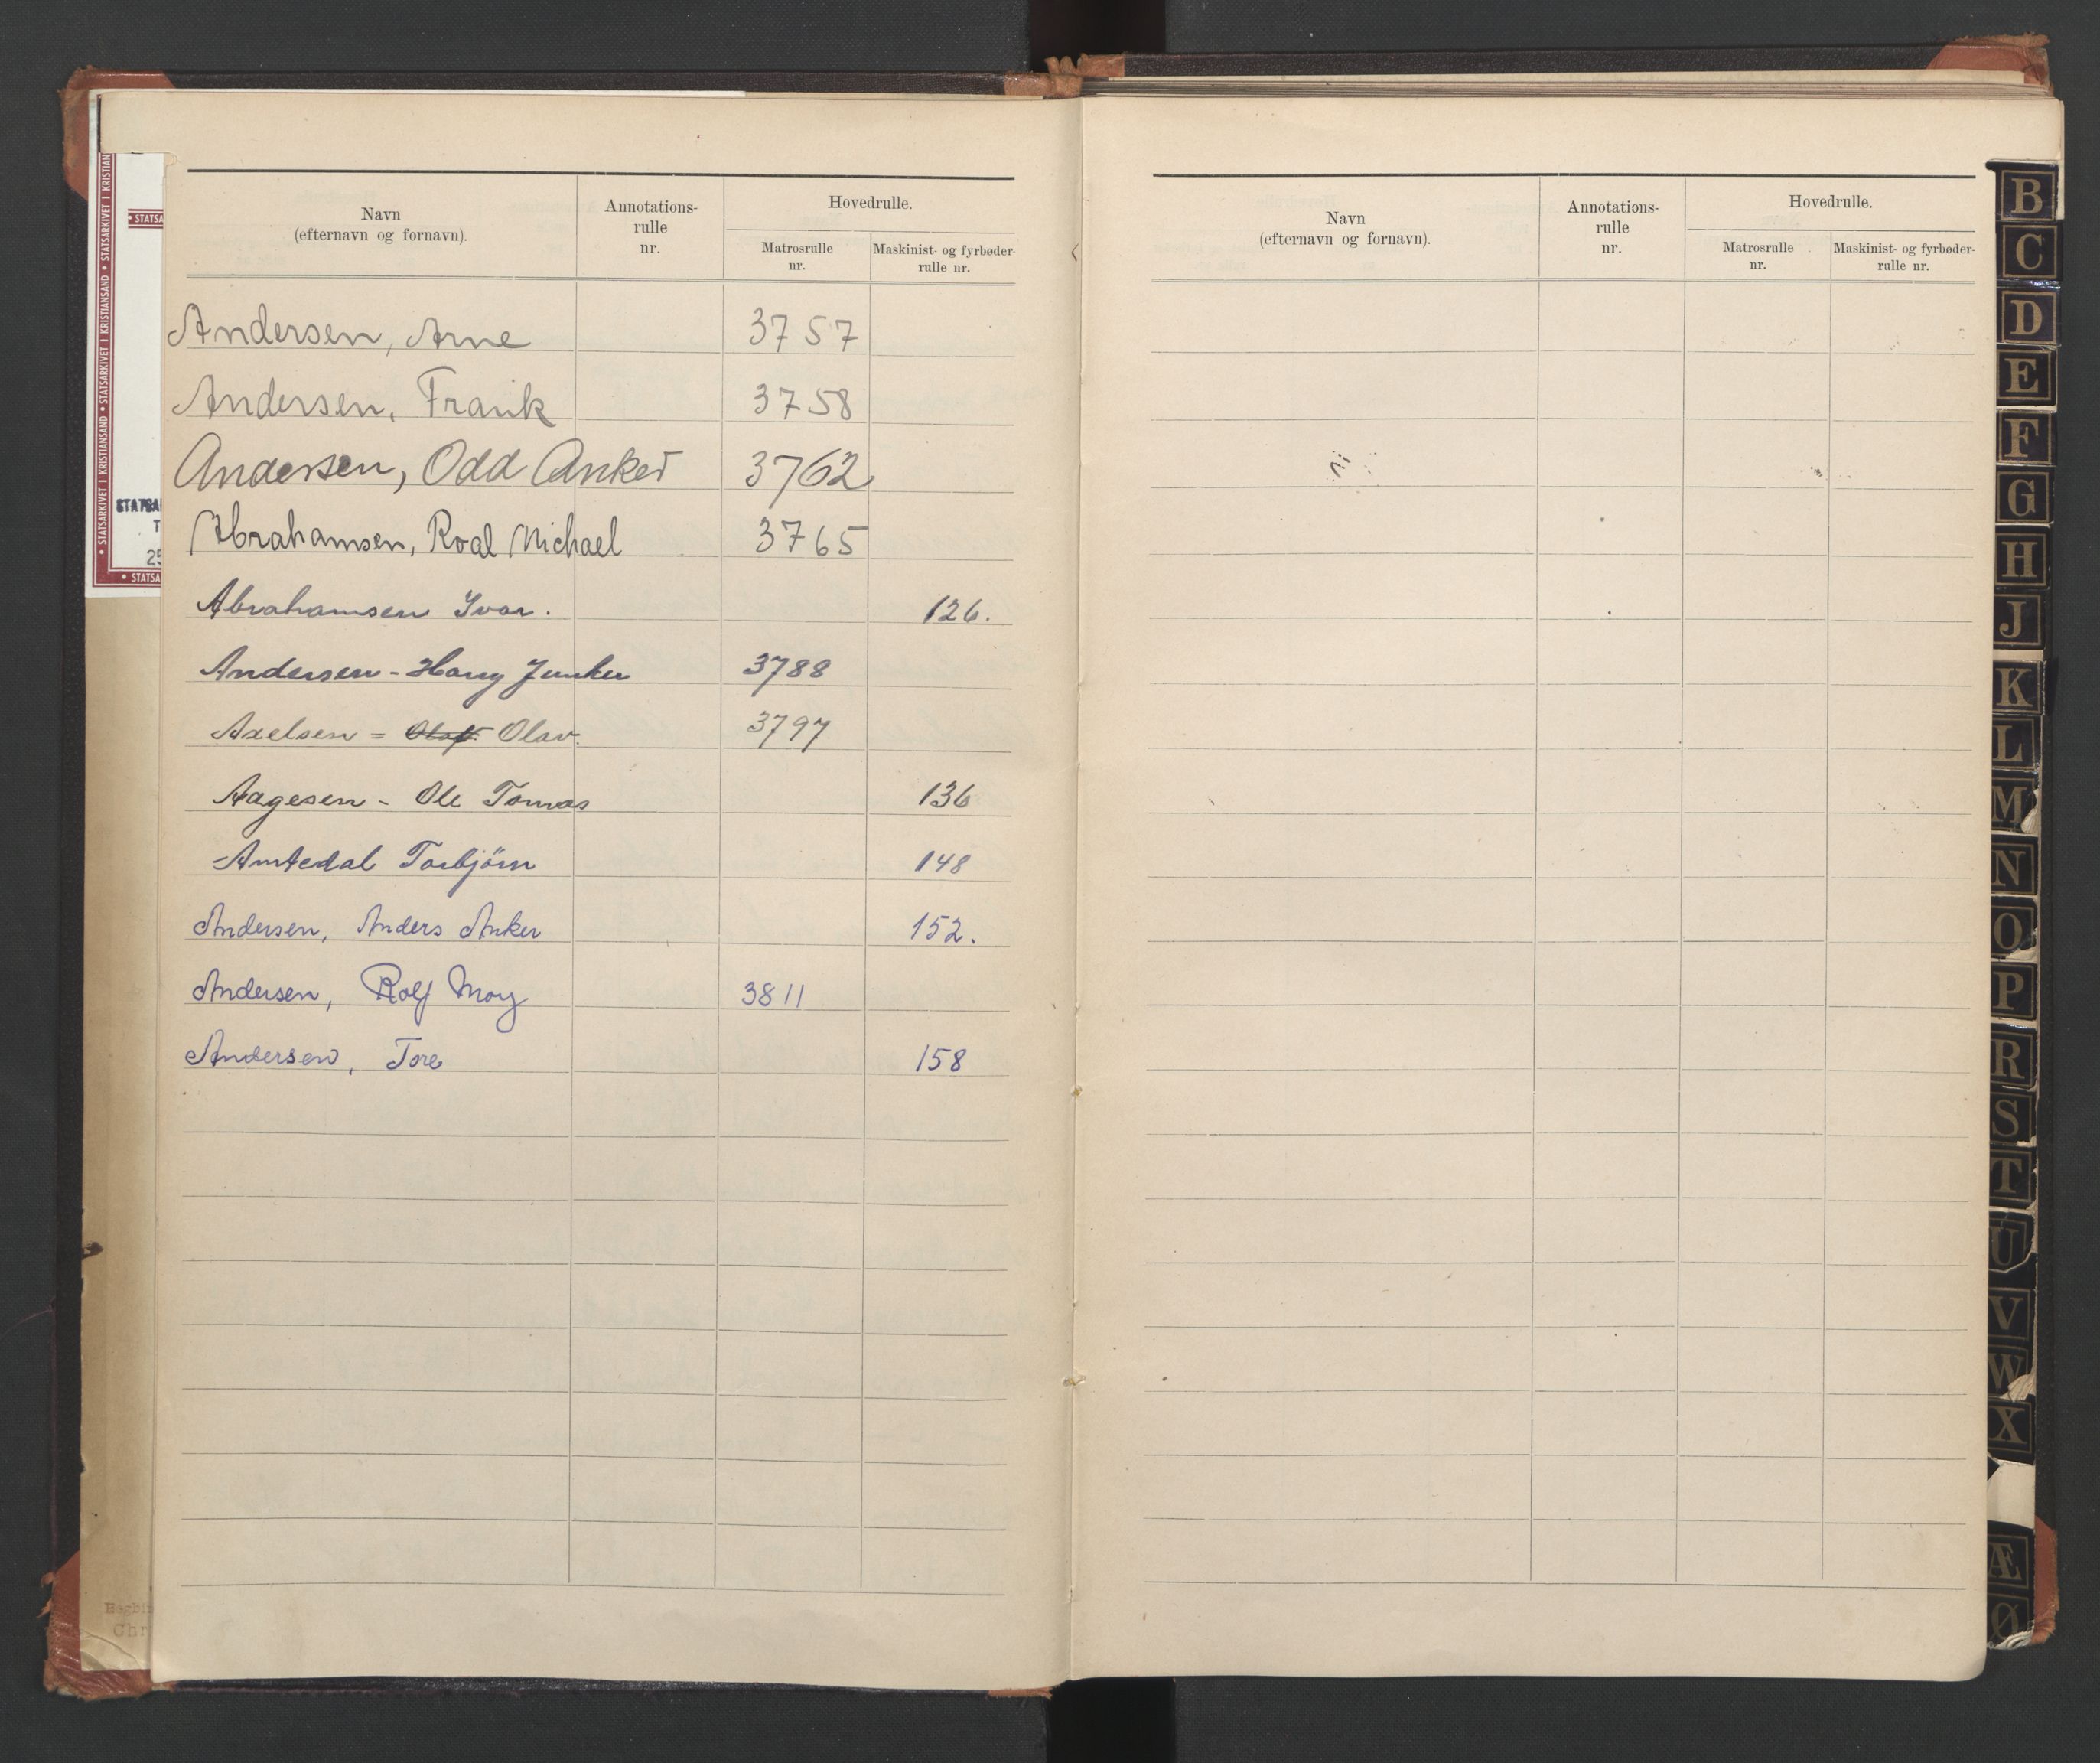 Navn
(efternavn og fornavn).
Annotations-
rulle
nr.
Hovedrulle.
Matrosrulle
nr.
Maskinist- og fyrbøder-
rulle nr.
Andersen, Arne 3757
Andersen, Frank 3758
Andersen, Odd Anker 3762
Abrahamsen, Roal Michael 3765
Abrahamsen Ivar. 126.
Andersen - Harry Junker 3788
Axelsen = Olaf Olav. 3797
Aagesen - Ole Tomas 136
Amtedal Torbjörn 148
Andersen, Anders Anker 152.
Andersen, Rolf Moy 3811
Andersen, Tore 158
Navn
(efternavn og fornavn).
Annotations-
rulle
nr.
Hovedrulle.
Matrosrulle
nr.
Maskinist- og fyrbøder-
rulle nr.
B
C
D
E
F
G
H
J
K
L
M
N
O
P
R
S
T
U
V
W
X
Æ
Ø
• STATSARKIVET I KRISTIANSAND • STATSARKIVET I KRISTIANSAND • STATSARKIVET I KRISTIAN
• STATSA
STATSA
T
25
• STATSA
Chr